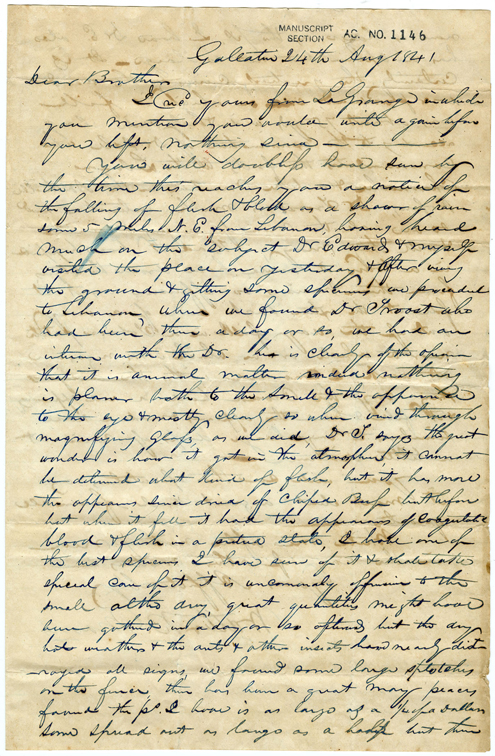 MANUSCRIPT
SECTION
AC. NO. 1146
Gallatin 24th Aug 1841
Dear Brother
I recd yours from LaGrange in which
you mention you would write again before
you left, nothing since —
You will doubtless have seen by
the time this reaches you a notice of
the falling of flesh & blood as a shower of rain
some 5 miles N. E. from Lebanon, having heard
much on the subject Dr Edwards & myself
visited the place on yesterday & after viewing
the ground & getting some specimens we proceeded
to Lebanon where we found Dr Troost who
had been there a day or so we had an
interview with the Dr. he is clearly of the opinion
that it is animal matter indeed nothing
is plainer both to the smell & the appearance
to the eye & mostly clearly so when viewed through
magnifying glass, as we did, Dr T. says the great
wonder is how it got in the atmosphere it cannot
be determined what kind of flesh, but it has more
the appearance since dried of Chiped Beef but before
that when it fell it had the appearance of Coagulated
blood & flesh in a putrid state I have one of
the best specimens I have seen of it & shall take
special care of it it is uncommonly offensive to the
smell altho dry, great quantities might have
been gathered in a day or so after but the dry
hot weather & the ants & other insects have nearly dist
royed all signs, we found some large splotches
on the fence, there has been a great many pieces
found the ps. I have is as large as a ¼ of a Dollar
some spread out as large as a half but there